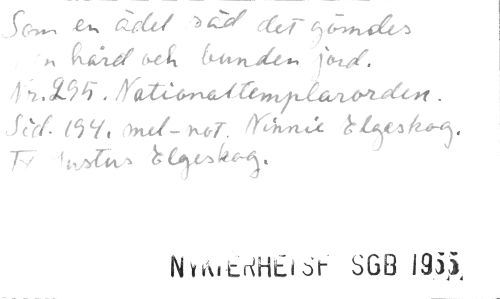 Som en ädel säd det gömdes
i en hård och bunden jord.
Nr. 295. Nationaltemplarorden.
Sid. 194. mel-not. Ninnie Elgeskog.
Tx Justus Elgeskog.
NYKTERHETSF SGB 1955